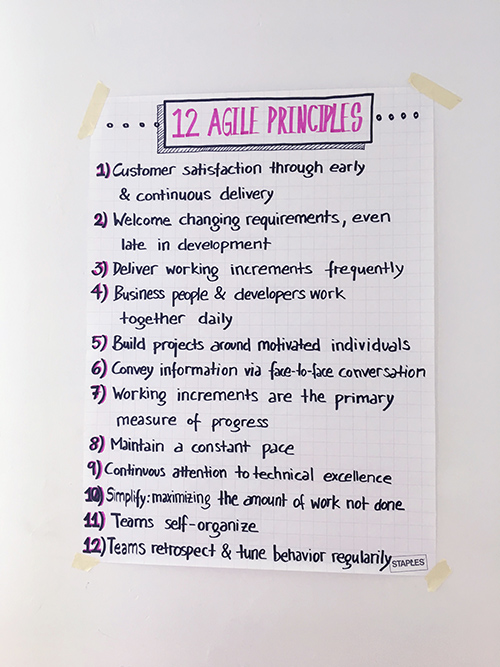 12 AGILE PRINCIPLES
1) Customer satisfaction through early
& continuous delivery
2) Welcome changing requirements, even
late in development
3) Deliver working increments frequently
4) Business people & developers work
together daily
5) Build projects around motivated individuals
6) Convey information via face-to-face conversation
7) Working increments are the primary
measure of progress
8) Maintain a constant pace
9) Continuous attention to technical excellence
10) Simplify: maximizing the amount of work not done
11) Teams self-organize
12) Teams retrospect & tune behavior regularily
STAPLES